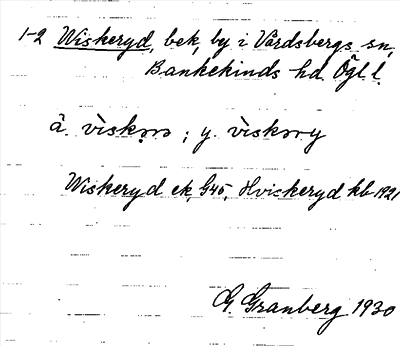 1-2 Wiskeryd, bek, by i Vårdsbergs sn,
Bankekinds hd, Ögl. l.
ä. vìskərə ; y. vìskəry
Wiskeryd ek, G45, Hviskeryd kb 1921
G. Granberg 1930